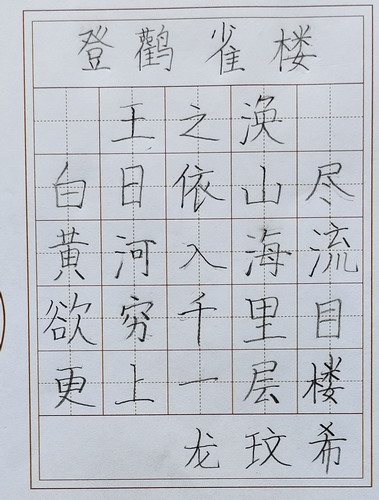 登鹳雀楼
王之涣
白日依山尽
黄河入海流
欲穷千里目
更上一层楼
龙玟希